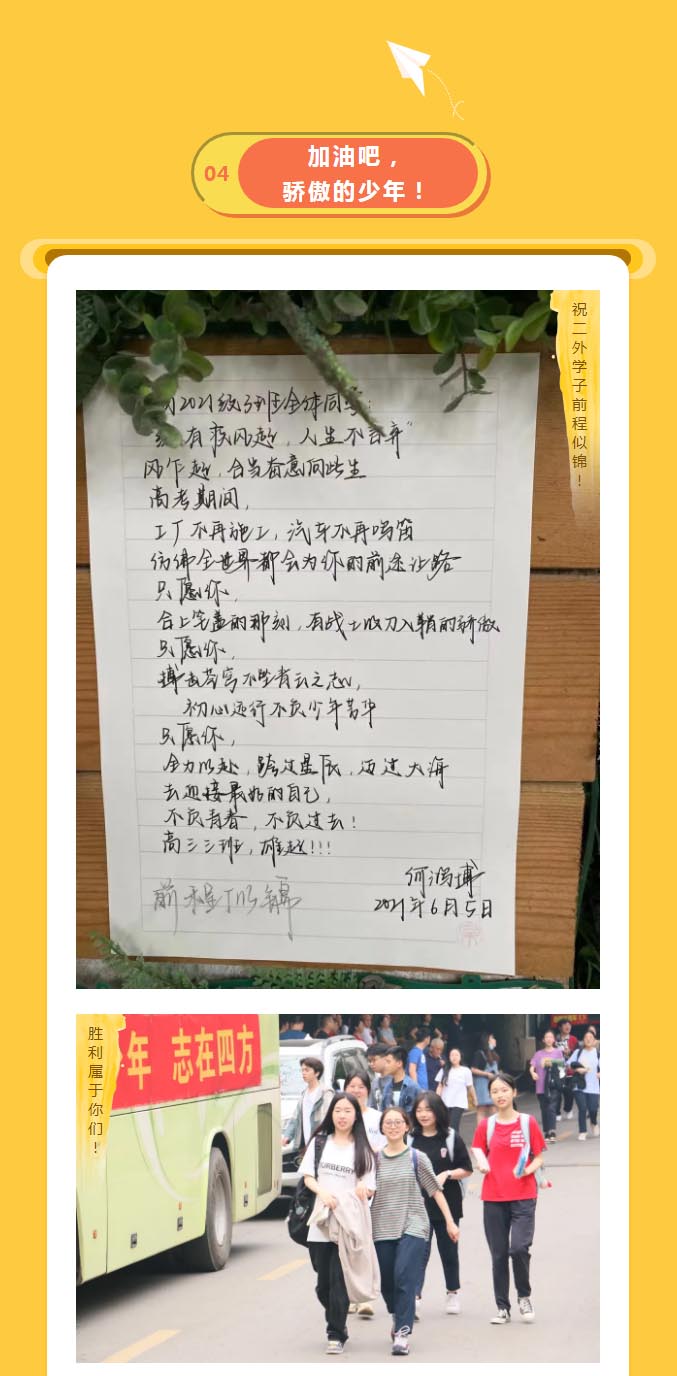 04
加油吧，
骄傲的少年！
祝二外学子前程似锦！
2021级3班全体同学：
有疾风起，人生不言弃”
风乍起，合当奋意向此生
高考期间，
工厂不再施工，汽车不再鸣笛
仿佛全世界都会为你的前途让路
只愿你，
合上笔盖的那刻，有战士收刀入鞘的骄傲
只愿你，
搏击苍穹不坠青云之志，
初心还行不负少年芳华
只愿你，
全力以赴，跨过星辰，迈过大海
去迎接最好的自己，
不负青春，不负过去！
高三三班，雄起!!!
何鸿博
2021年6月5日
前程似锦
胜利属于你们！
年 志在四方
BURBERRY